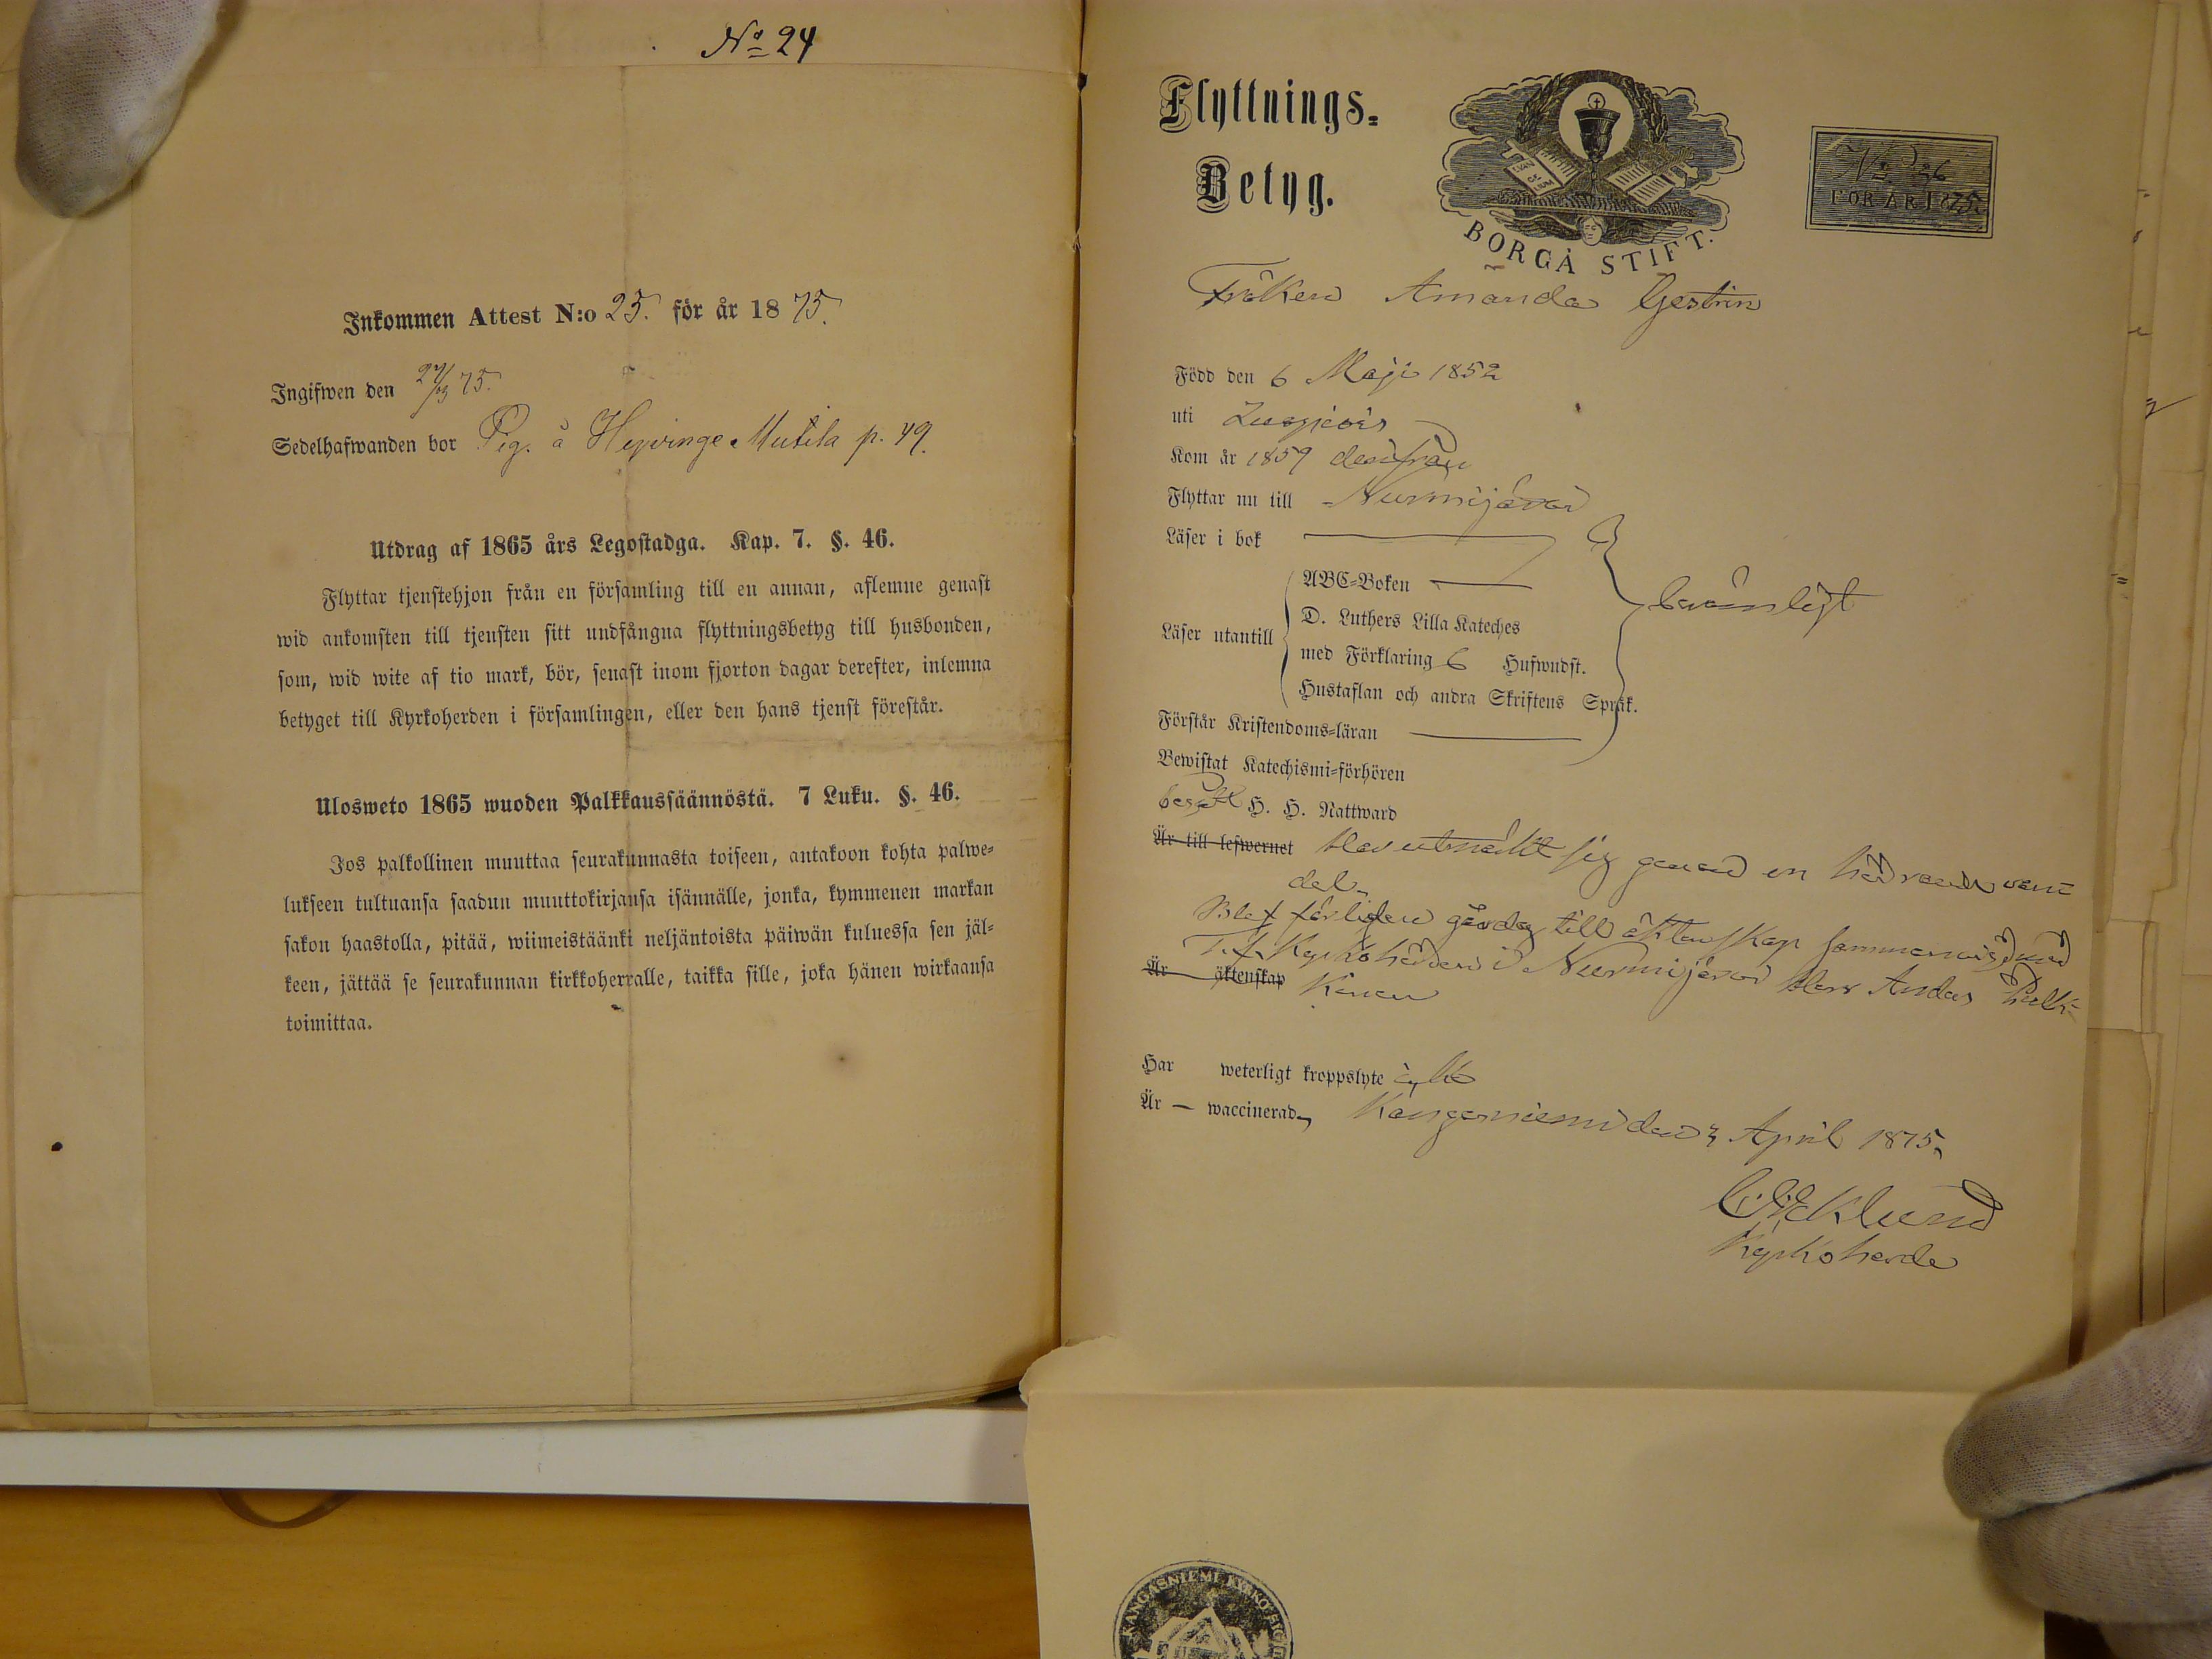 No 24
Inkommen Attest N:o 25. för år 1875.
Ingifwen den 75.
Sedelhafwanden bor Pig. å Hyvinge Mutila p. 49.
Utdrag af 1865 års Legostadga. Kap. 7. §. 46.
Flyttar tjenstehjon från en församling till en annan, aflemne genast
wid ankomsten till tjensten sitt undfångna flyttningsbetyg till husbonden,
som, wid wite af tio mark, bör, senast inom fjorton dagar derefter, inlemna
betyget till Kyrkoherden i församlingen, eller den hans tjenst förestår.
Ulosweto 1865 wuoden Palkkaussäännöstä. 7 Luku. §. 46.
Jos palkollinen muuttaa seurakunnasta toiseen, antakoon kohta palwe-
lukseen tultuansa saadun muuttokirjansa isännälle, jonka, kymmenen markan
sakon haastolla, pitää, wiimeistäänki neljäntoista päiwän kuluessa sen jäl-
keen, jättää se seurakunnan kirkkoherralle, taikka sille, joka hänen wirkaansa
toimittaa.
Flyttnings-
Betyg.
EVAN
GE
LIUM
BORGÅ STIFT.
No 26
FÖR ÅR 1875.
Fröken Amanda Gestrin
Född den 6 Maji 1852
uti
Kom år 1859 derifrån
Flyttar nu till Nurmijärvi
Läser i bok
ABC-Boken
Läser utantill
D. Luthers Lilla Kateches
med Förklaring 6 Hufwudst.
Hustaflan och andra Skriftens Språk.
berömligt
Förstår Kristendoms-läran
Bewistat Katechismi-förhören
begått H. H. Nattward
Är till lefwernet har utmärkt sig genom en
del.
Blef förliden gårdag till äktenskap sammanvigd med
T. f. Kyrkoherden i Nurmijärvi Herr Anders
Är äktenskap
Har weterligt kroppslyte ej
Är — waccinerad, Kangasniemi den 3 April 1875.
Eklund
Kyrkoherde
KANGASNIEMI KYRKO